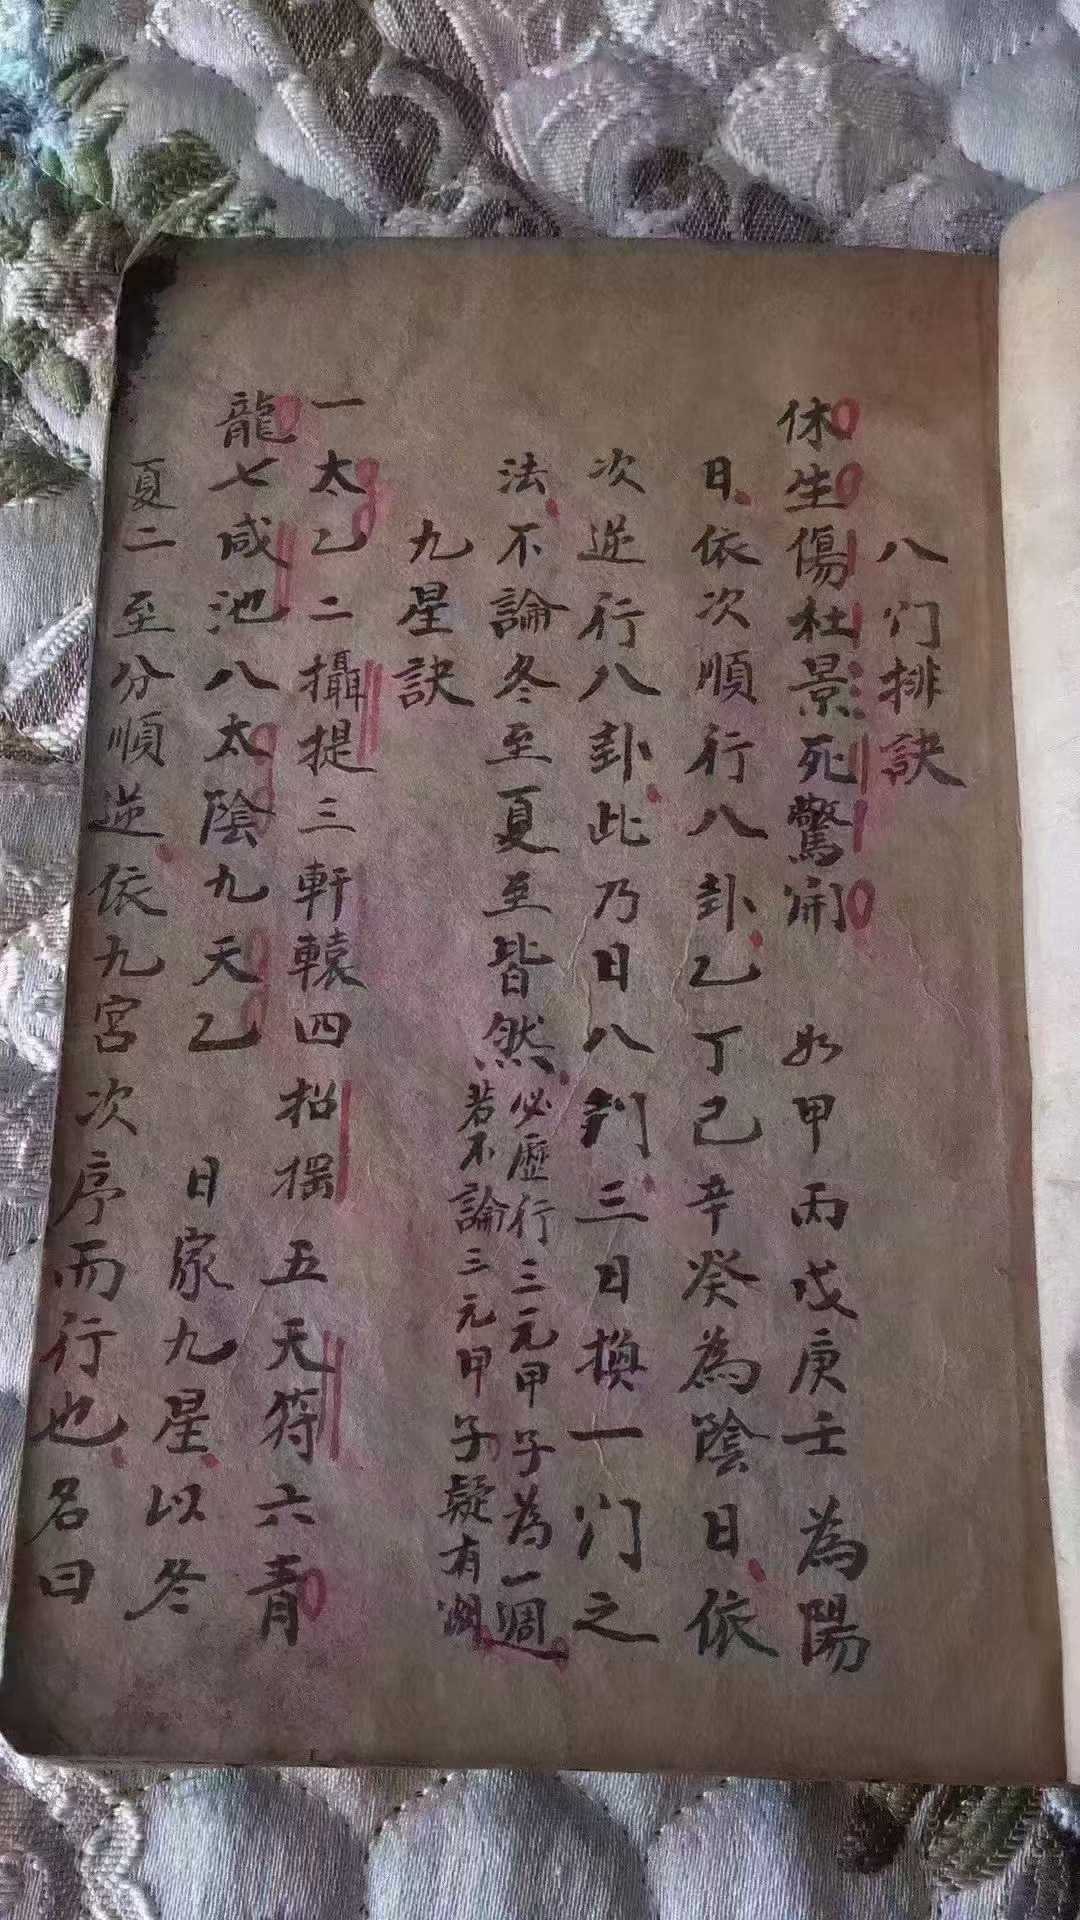 八门排訣
休生傷杜景死驚開　如甲丙戊庚壬為陽
日依次順行八卦乙丁己辛癸為陰日依
次逆行八卦此乃日八判三日換一门之
法不論冬至夏至皆然必歷行三元甲子為一週
若不論三元甲子疑有
九星訣
一太乙二攝提三軒轅四招摇五天符六青
龍七咸池八太陰九天乙　日家九星以冬
夏二至分順逆依九宮次序而行也名曰